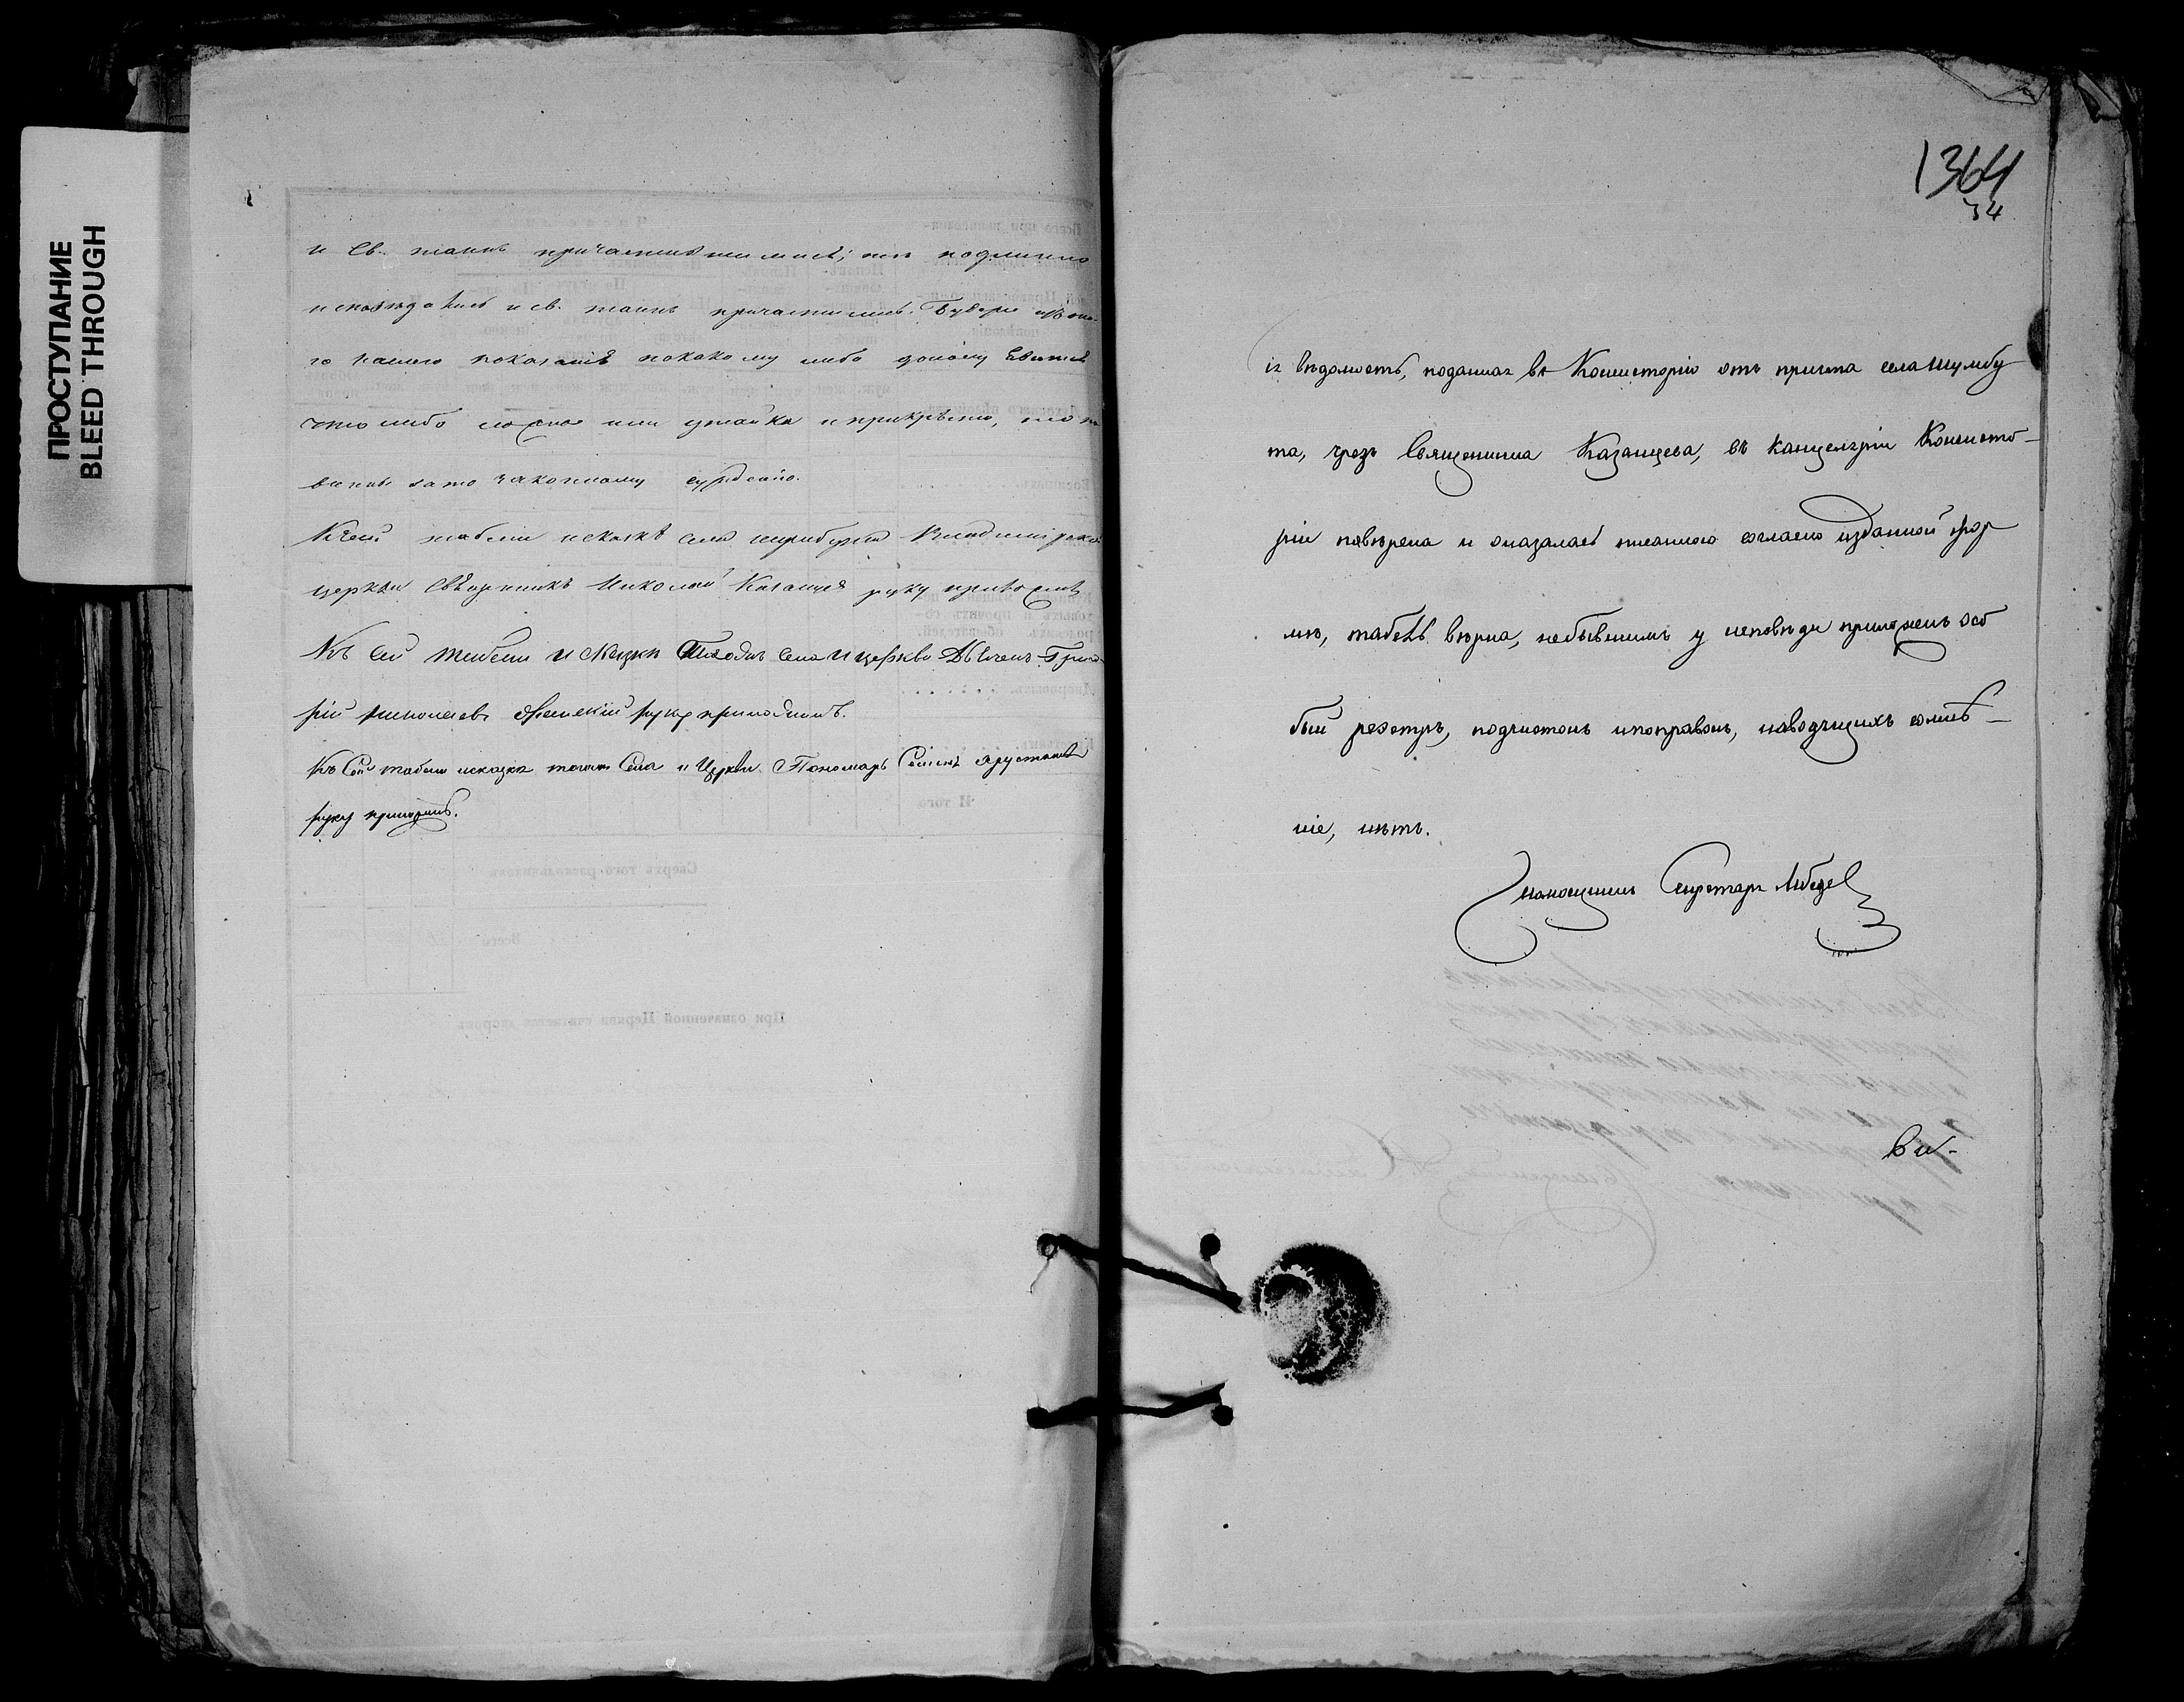 ПРОСТУПАНИЕ
BLEED THROUGH
и Св. таинъ причастившимися; тѣ подлинно
исповѣдались и св. таинъ причастились. Будеже изъ се-
го нашего показанія по какому либо доносу явится
что либо ложное или утайка и прикрыто, то по
винны за то законному сужденію.
Къ сей табели и сказкѣ села Шумбута
церкви Священникъ Николай Казанцев руку приложилъ
Къ сей табели и скаски Тогожъ села и церкви Дьячекъ Григо-
рій руку приложилъ.
Къ Сей табели и сказки тогожъ Села и Церкви Пономарь
руку приложилъ.
1364
34
ія вѣдомость, поданная въ Консисторію отъ причта села Шумбу
та, чрезъ Священника Казанцева, въ канцеляріи Консисто-
ріи повѣрена и оказалась писанною согласно изданной фор
мѣ, табель вѣрна, небывшимъ у исповѣди приложенъ осо
бый реэстръ, подчистокъ и поправокъ, наводящихъ сомнѣ-
ніе, нѣтъ.
Секретарь
Ви-